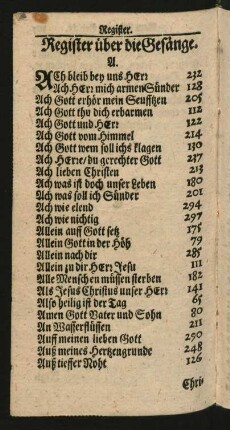 Register.
Register über die Gesänge.
A.
ACh bleib bey uns HErr 232
Ach Herr mich armen Sünder 128
Ach Gott erhör mein Seufftzen 205
Ach Gott thu dich erbarmen 112
Ach Gott und HErr 122
Ach Gott vom Himmel 214
Ach Gott wem soll ichs klagen 130
Ach HErre/ du gerechter Gott 237
Ach lieben Christen 213
Ach was ist doch unser Leben 180
Ach was soll ich Sünder 201
Ach wie elend 294
Ach wie nichtig 297
Allein auff Gott setz 175
Allein Gott in der Höh 79
Allein nach dir 285
Allein zu dir HErr Jesu 111
Alle Menschen müssen sterben 182
Als Jesus Christus unser HErr 141
Also heilig ist der Tag 65
Amen Gott Vater und Sohn 80
An Wasserflüssen 211
Auff meinen lieben Gott 290
Auß meines Hertzengrunde 248
Auß tieffer Noht 126
Chri-